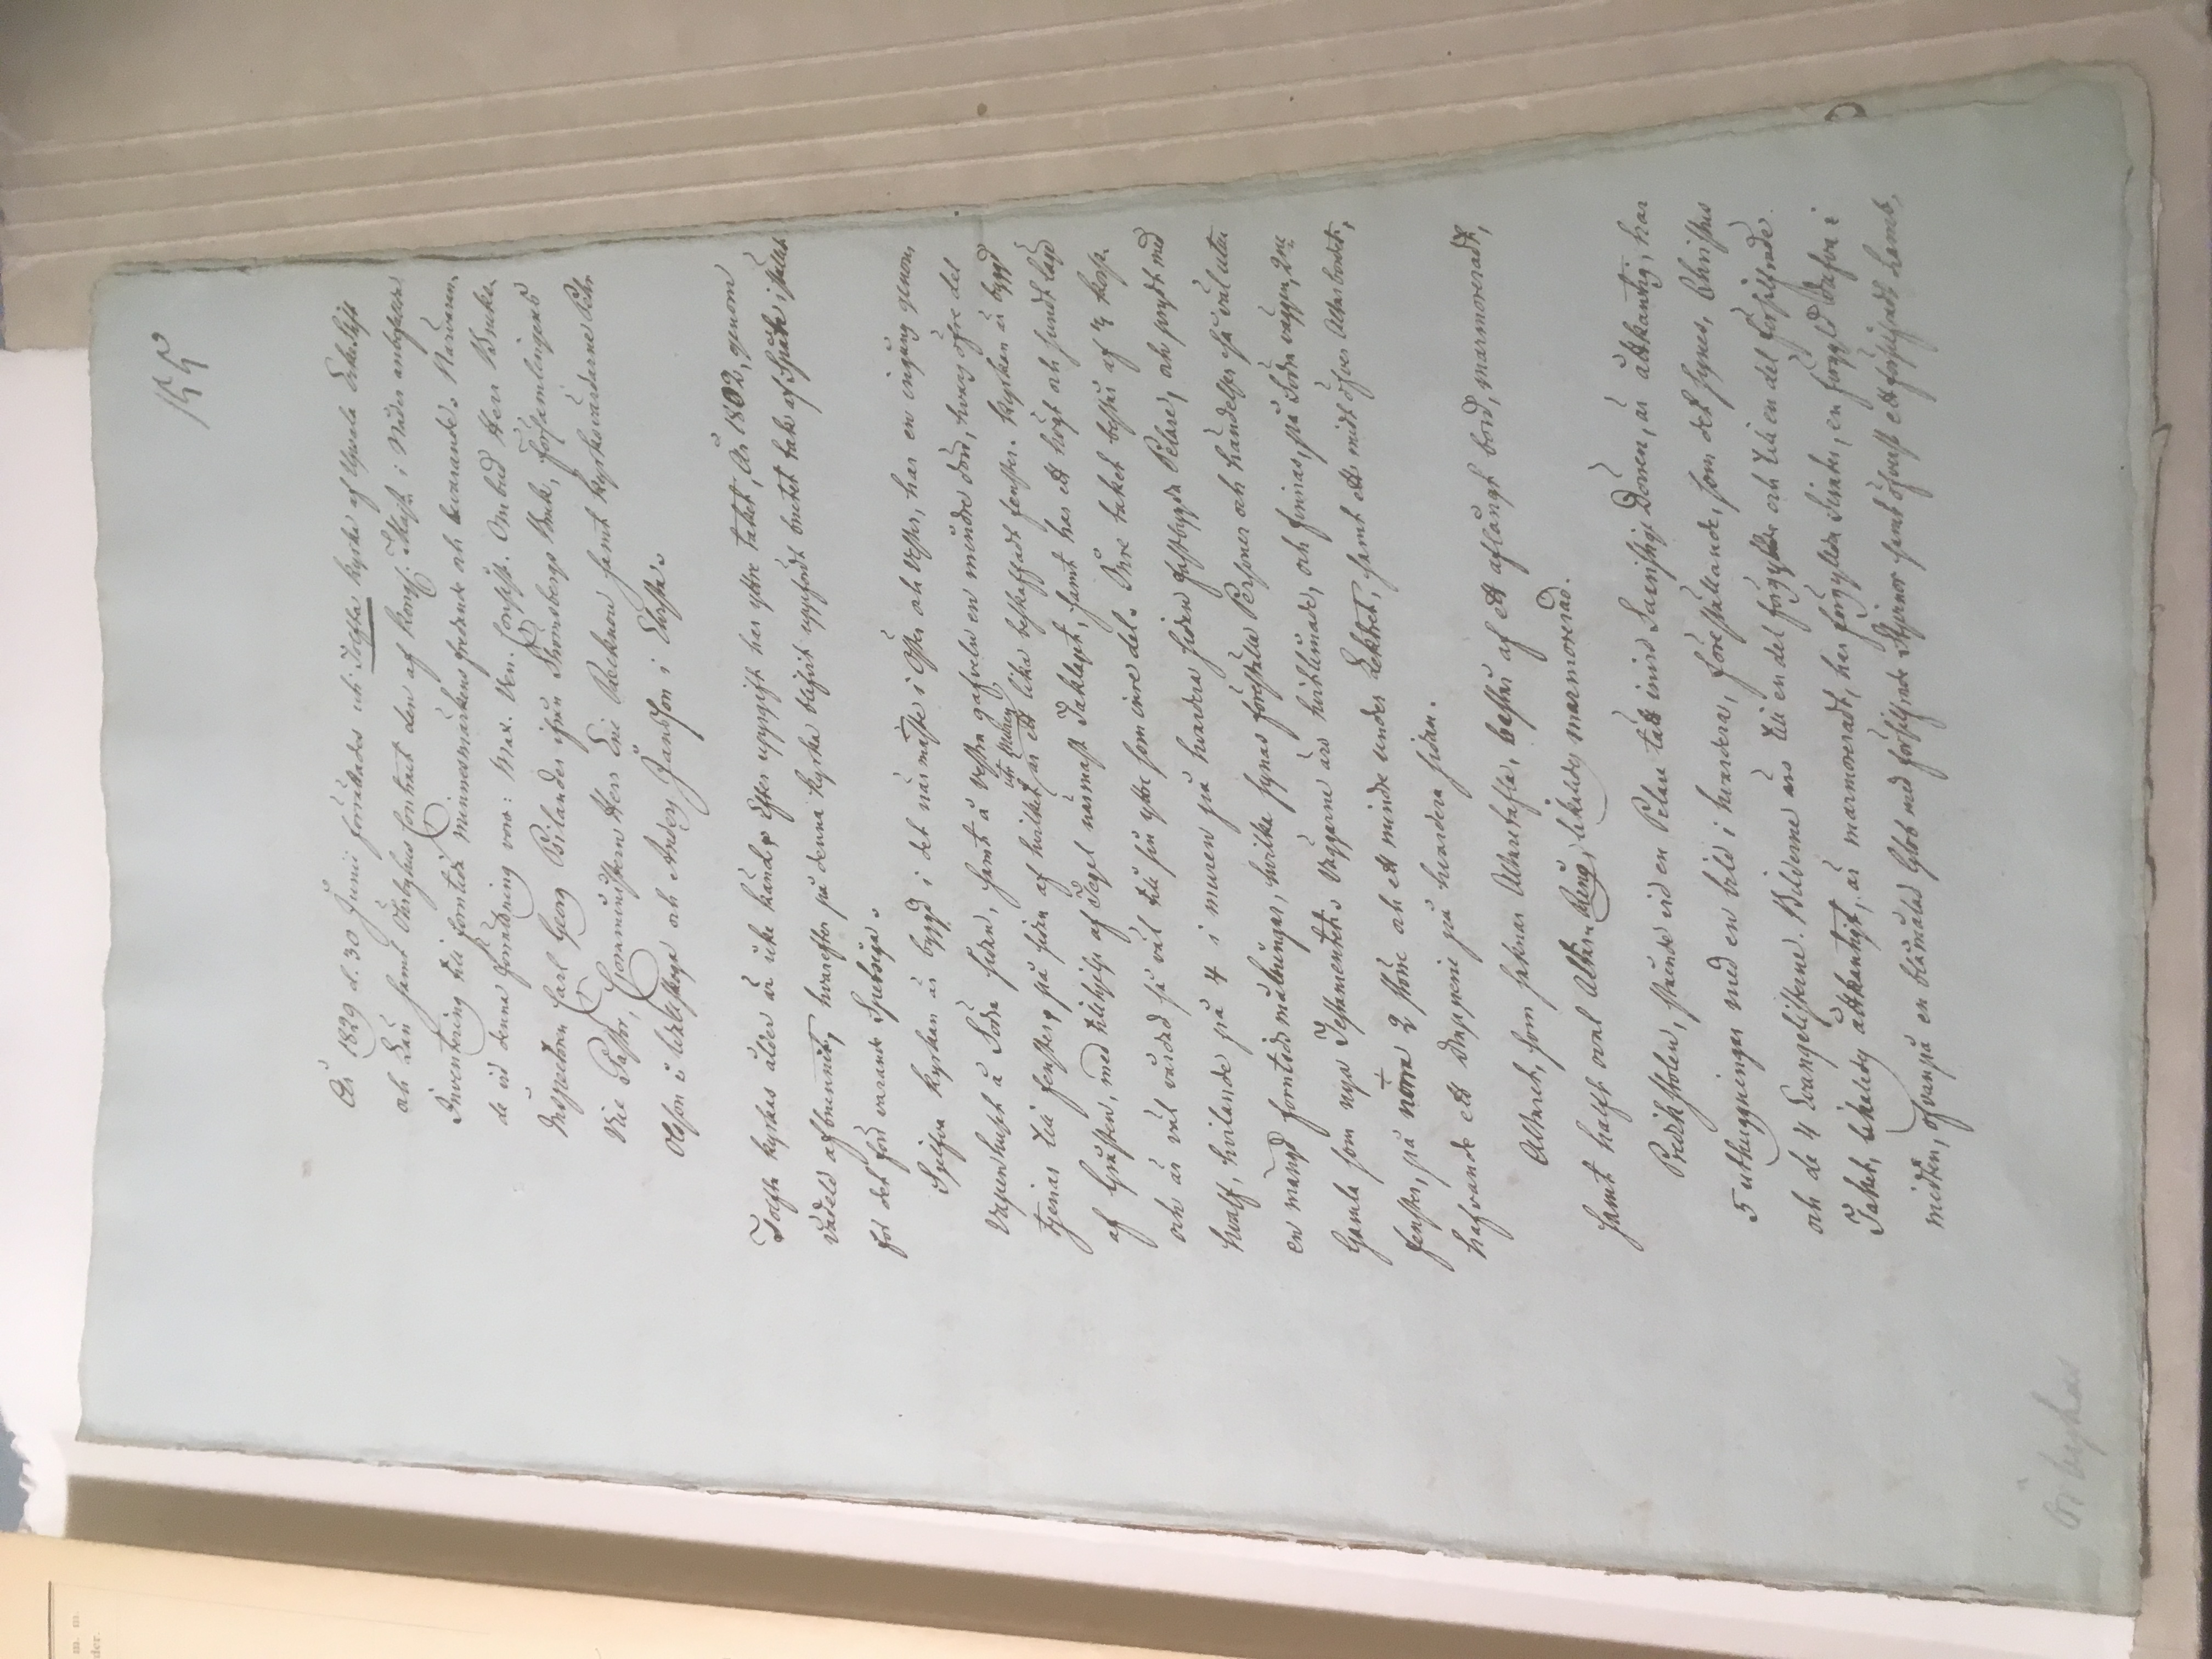 155
År 1829 d. 30 Junii förrättades uti Tolfta kyrka af Upsala Erkestift
och Län samt Örbyhus Contract den af Kongl. Majst i Nåder anbefallde
Inventering till forntida minnesmärkens fredande och bevarande. Närvaran,
de vid denna förrättning voro: Max. Ven. Consist. Ombud Herr Bruks
Inspectoren Carl Georg Bilander ifrån Strömsbergs Bruk, församlingens
Vice Pastor, Comministern Herr Eric Rehnon samt kyrkovärderne Pehr
Olsson i och Anders Jansson i
Tolfta kyrkas ålder är icke känd, Efter uppgift har yttre taket, År 1802, genom
vådeld afbrunnit, hvarefter på denna kyrka blifvit uppfördt brutet tak af Spåhn i stället
för det förr varande Spetsiga.
Sjelfva kyrkan är byggd i det närmaste i Öster och Vester, har en ingång genom
Vapenhuset å Södra sidan, samt å Vestra gafveln en mindre dörr, hvars öfre del
tjenar till fenster, på sidan af hvilken är ett lika beskaffadt fenster. Kyrkan är byggd
af Gråsten, med tillhjelp af Tegel närmast Taklaget, samt har ett högt och sundt läge
och är väl vårdad så väl till sin yttre som inre del. Inre taket består af 4 kors
hvalf, hvilande på 4 i muren på hvardera sidan fastbyggda Pelare, och prydt med
en mängd forntids målningar, hvilka synas föreställa Personer och händelser så väl utur
Gamla som nya Testamentet. Väggarne äro hvitlimmade, och finnas, på Södra väggen, 2ne
fenster, på norra 2 större och ett mindre under Läktet, samt ett midt öfver Altarbordet,
hafvande ett Draperie på hvardera sidan.
Altaret, som saknar Altartafla, består af ett aflångt bord, marmoreradt,
samt half oval Altar Ring, likaledes marmorerad.
Predikstolen, stående vid en Pelare tätt invid Sacristigs Dörren, är åttkantig, har
5 utbugningar med en bild i hvardera, föreställande, som det synes, Christus
och de 4 Evangelisterne. Bilderne äro till en del förgyllde och till en del försilfrade.
Taket, likaledes åttkantigt, är marmoreradt, har förgyllda lister, en förgylld dufva i
midten, ofvanpå en blåmålad Glob med försilfrade Stjernor samt öfverst ett försilfradt Lamb,
Örbyhus